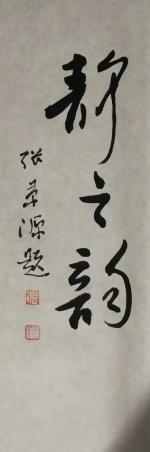 静之韵
张草源题